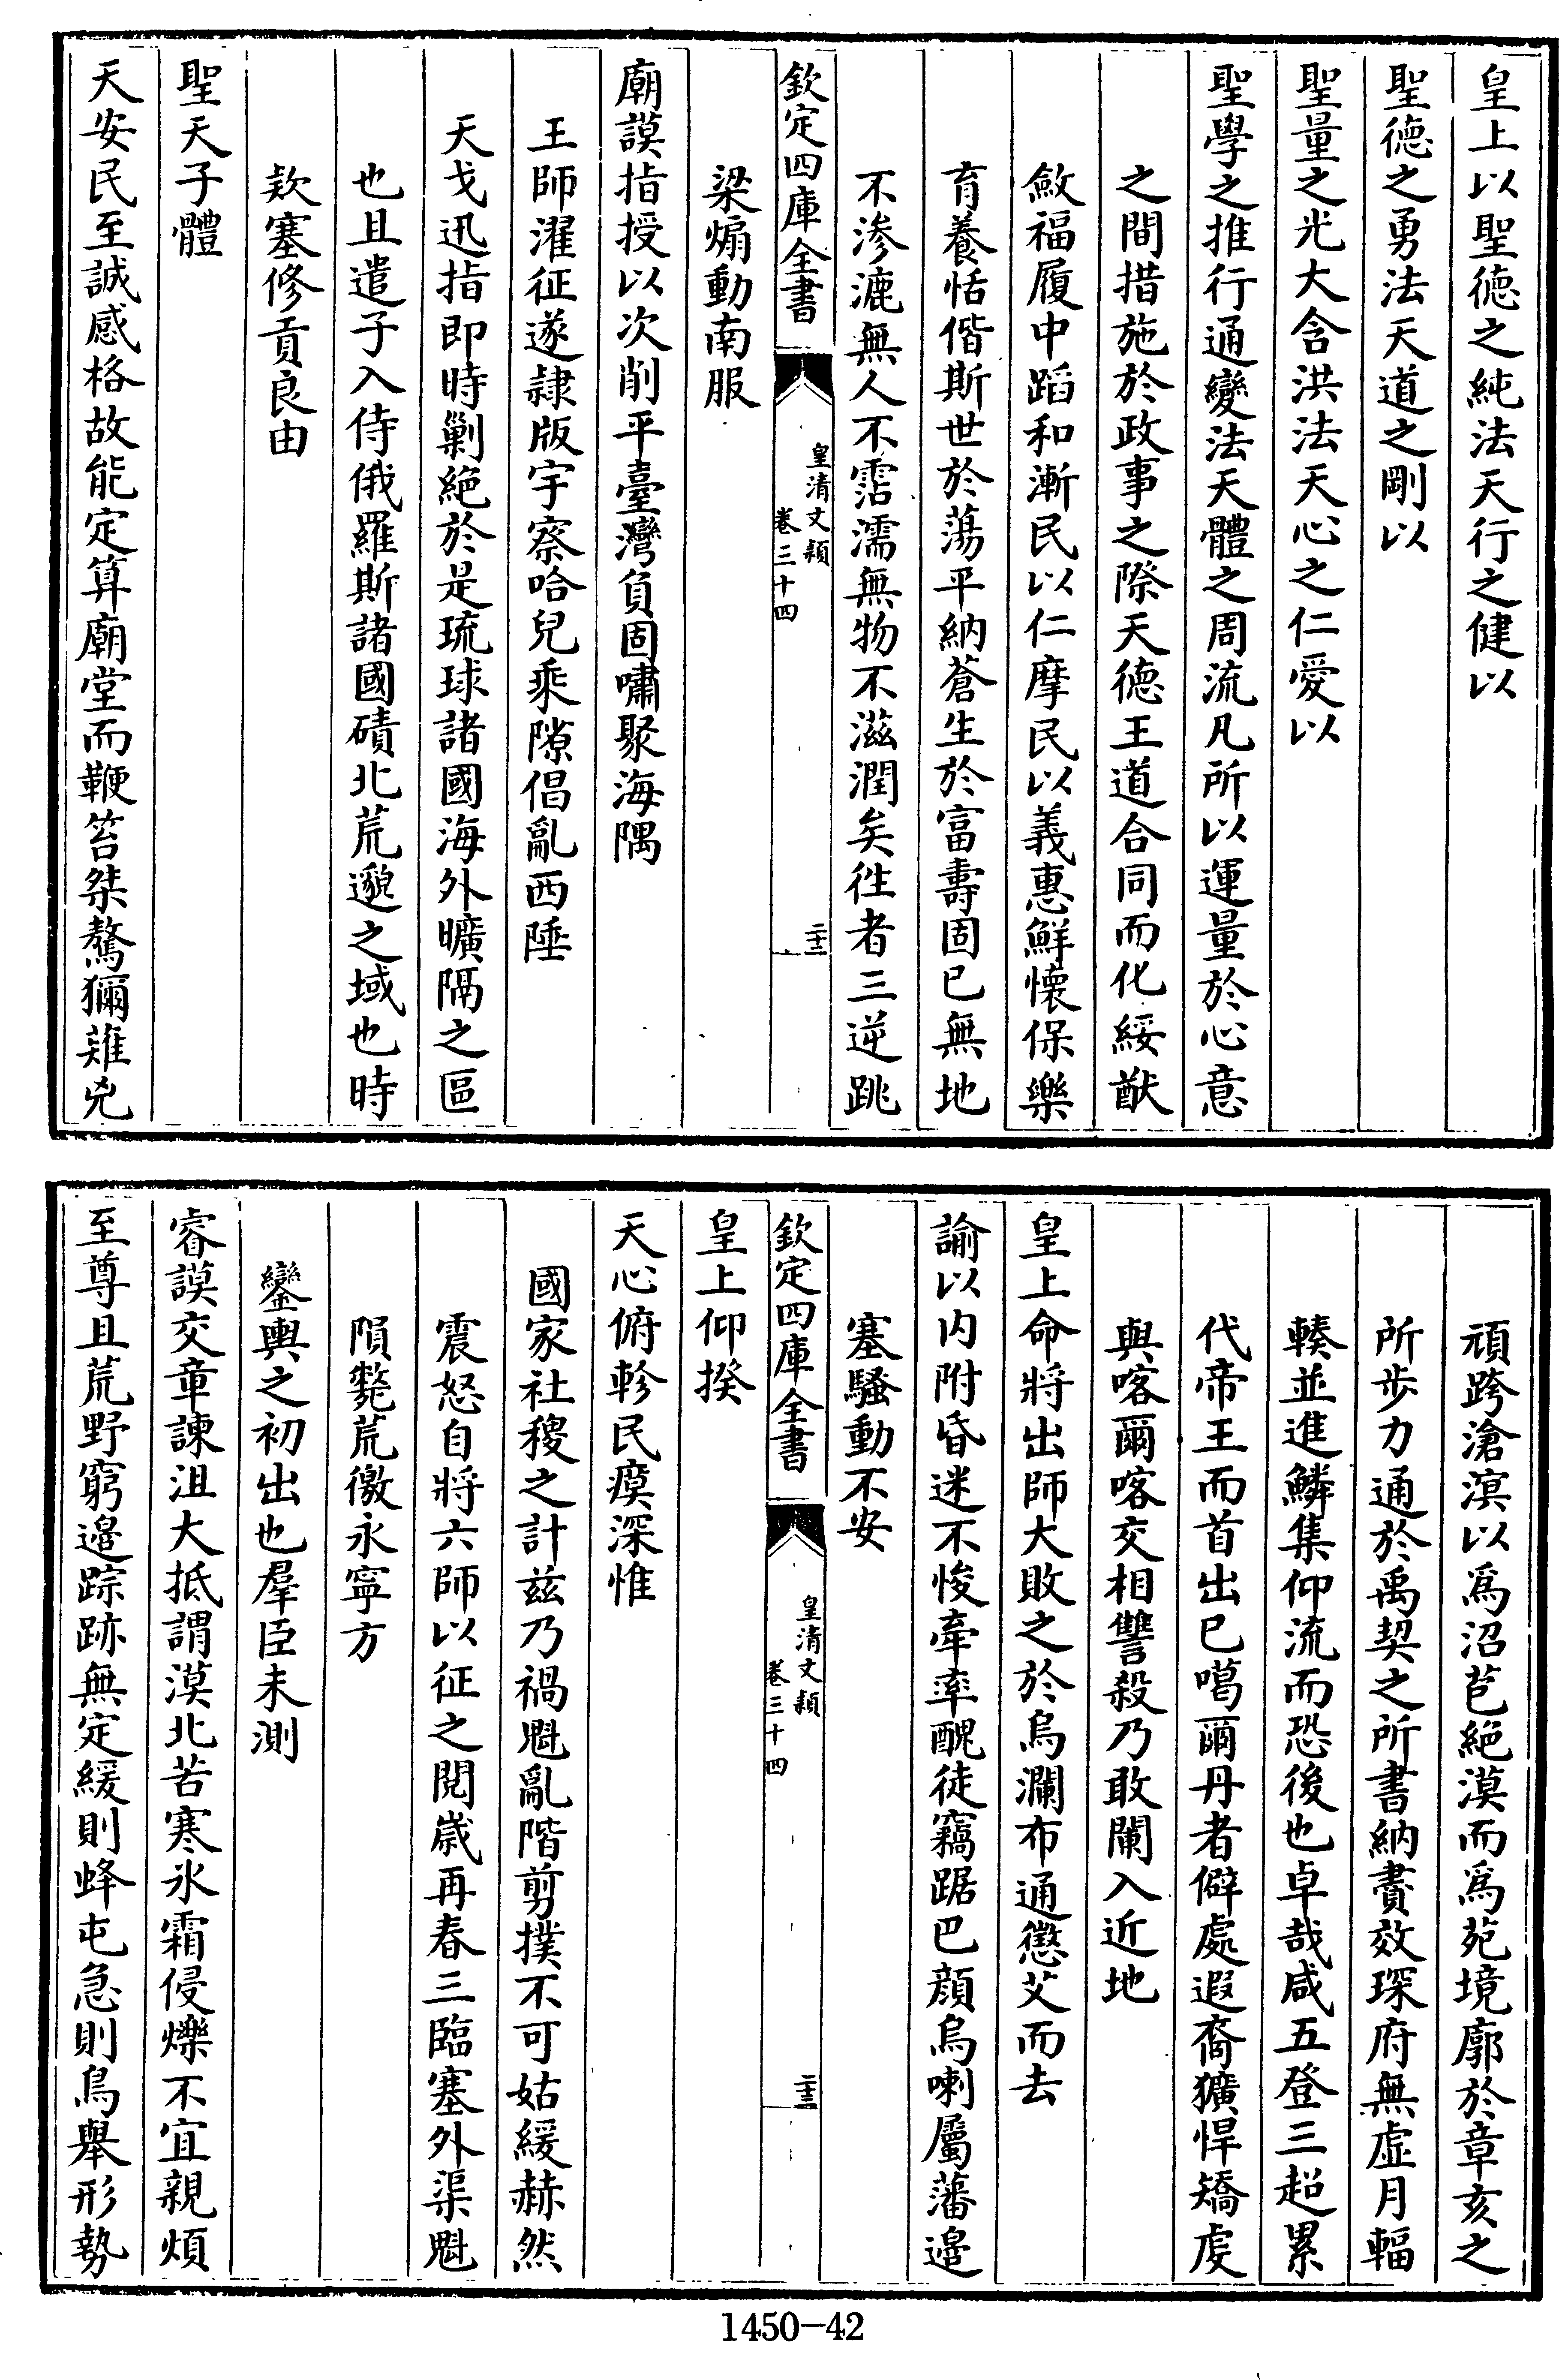 皇上以聖德之純法天行之健以
聖德之勇法天道之剛以
聖量之光大含洪法天心之仁愛以
聖學之推行通變法天體之周流凡所以運量於心意
之間措施於政事之際天德王道合同而化綏猷
斂福履中蹈和漸民以仁摩民以義惠鮮懷保樂
育養恬偕斯世於蕩平納蒼生於富壽固已無地
不渗漉無人不霑濡無物不滋潤矣徃者三逆跳
欽定四庫全書
皇清文穎
卷三十四
二十二
梁煽動南服
廟謨指授以次削平臺灣負固嘯聚海隅
王師濯征遂隷版宇察哈兒乘隙倡亂西陲
天戈迅指即時剿絶於是琉球諸國海外曠隔之區
也且遣子入侍俄羅斯諸國磧北荒邈之域也時
欵塞修貢良由
聖天子體
天安民至誠感格故能定算廟堂而鞭笞桀驁獮薙兇
頑跨滄溟以爲沼苞絶漠而爲苑境廓於章亥之
所歩力通於禹契之所書納賮效琛府無虚月輻
輳並進鱗集仰流而恐後也卓哉咸五登三超累
代帝王而首出已噶爾丹者僻處遐裔獷悍矯虔
與喀爾喀交相讐殺乃敢闌入近地
皇上命將出師大敗之於烏瀾布通懲艾而去
諭以内附昏迷不悛牽率醜徒竊踞巴顔烏喇屬藩邉
塞騷動不安
欽定四庫全書
皇清文穎
卷三十四
二十三
皇上仰揆
天心俯軫民瘼深惟
國家社稷之計兹乃禍魁亂階剪撲不可姑緩赫然
震怒自將六師以征之閱歲再春三臨塞外渠魁
隕斃荒徼永寧方
鑾輿之初出也羣臣未測
睿謨交章諫沮大抵謂漠北苦寒氷霜侵爍不宜親煩
至尊且荒野窮邉踪跡無定緩則蜂屯急則鳥舉形勢
1450-42